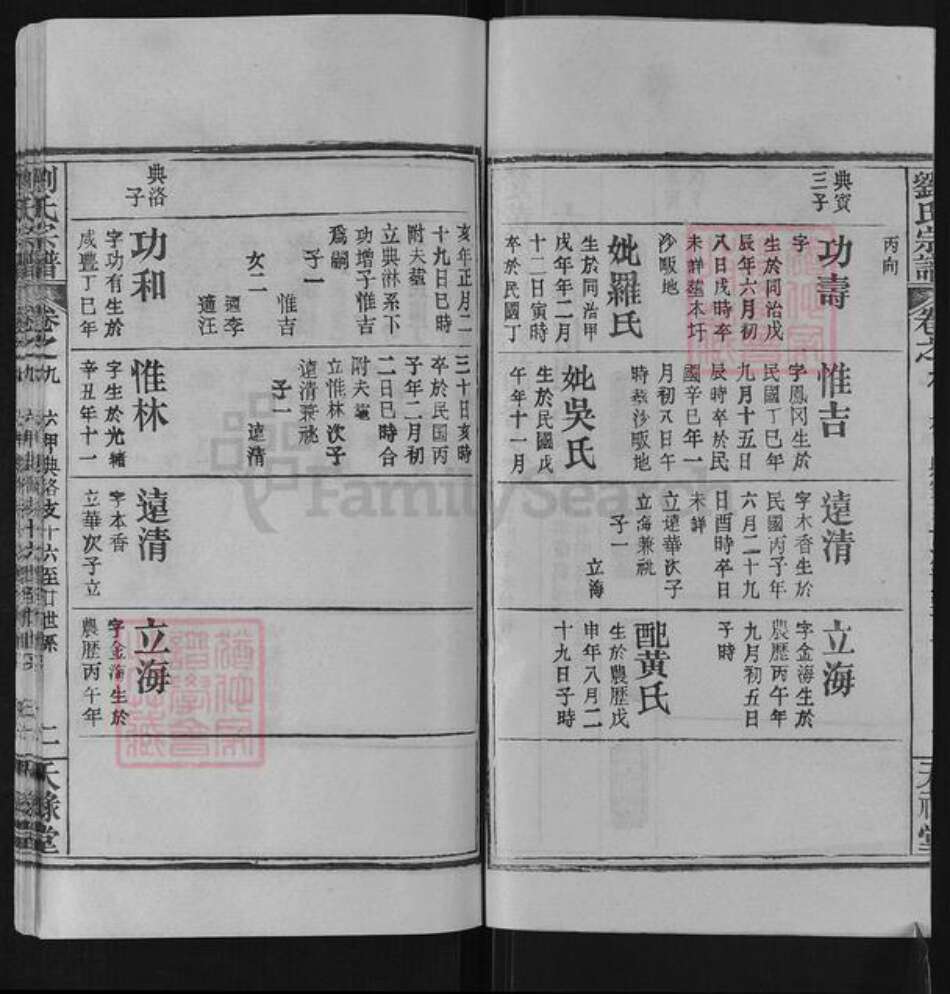 丙向
典寶
三子
功壽
字
生於同治戊
辰年六月初
八日戌時卒
未詳葬本圩
沙畈地
妣羅氏
生於同治甲
戌年年二月
十二日寅時
卒於民國丁
惟吉
字鳳冈生於
民國丁巳年
九月十五日
辰時卒於民
國辛巳年一
月初八日午
時葬沙畈地
妣吳氏
生於民國戊
午年十一月
遠清
字木香生於
民國丙子年
六月二十九
日酉時卒日
未詳
立遠華次子
立海兼祧
子一
立海
立海
字金海生於
農歷丙午年
九月初五日
子時
配黃氏
生於農歷戊
申年八月二
十九日子時
亥年正月二
十九日巳時
附夫墓
立典淋系下
功增子惟吉
爲嗣
子一
惟吉
女二
適李
適汪
三十日亥時
卒於民国丙
子年二月初
二日巳時合
附夫墓
立惟林次子
遠清兼祧
子一
遠清
典洛
子
功和
字功有生於
咸豐丁巳年
惟林
字生於光緒
辛丑年十一
遠清
字本香
立華次子立
立海
字金海生於
農歷丙午年
劉氏宗譜
卷之九
六甲典洛支十六至廿世系
二
天祿堂
FamilySearch